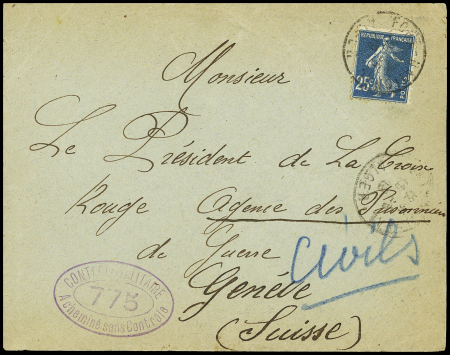 REPUBLIQUE FRANÇAISE
25c
Monsieur
Le Président de La Croix
Rouge Agence des Prisonniers
de Guerre
Civils
Genève
(Suisse)
CONTRÔLE MILITAIRE
775
Acheminé sans Contrôle
ALGER